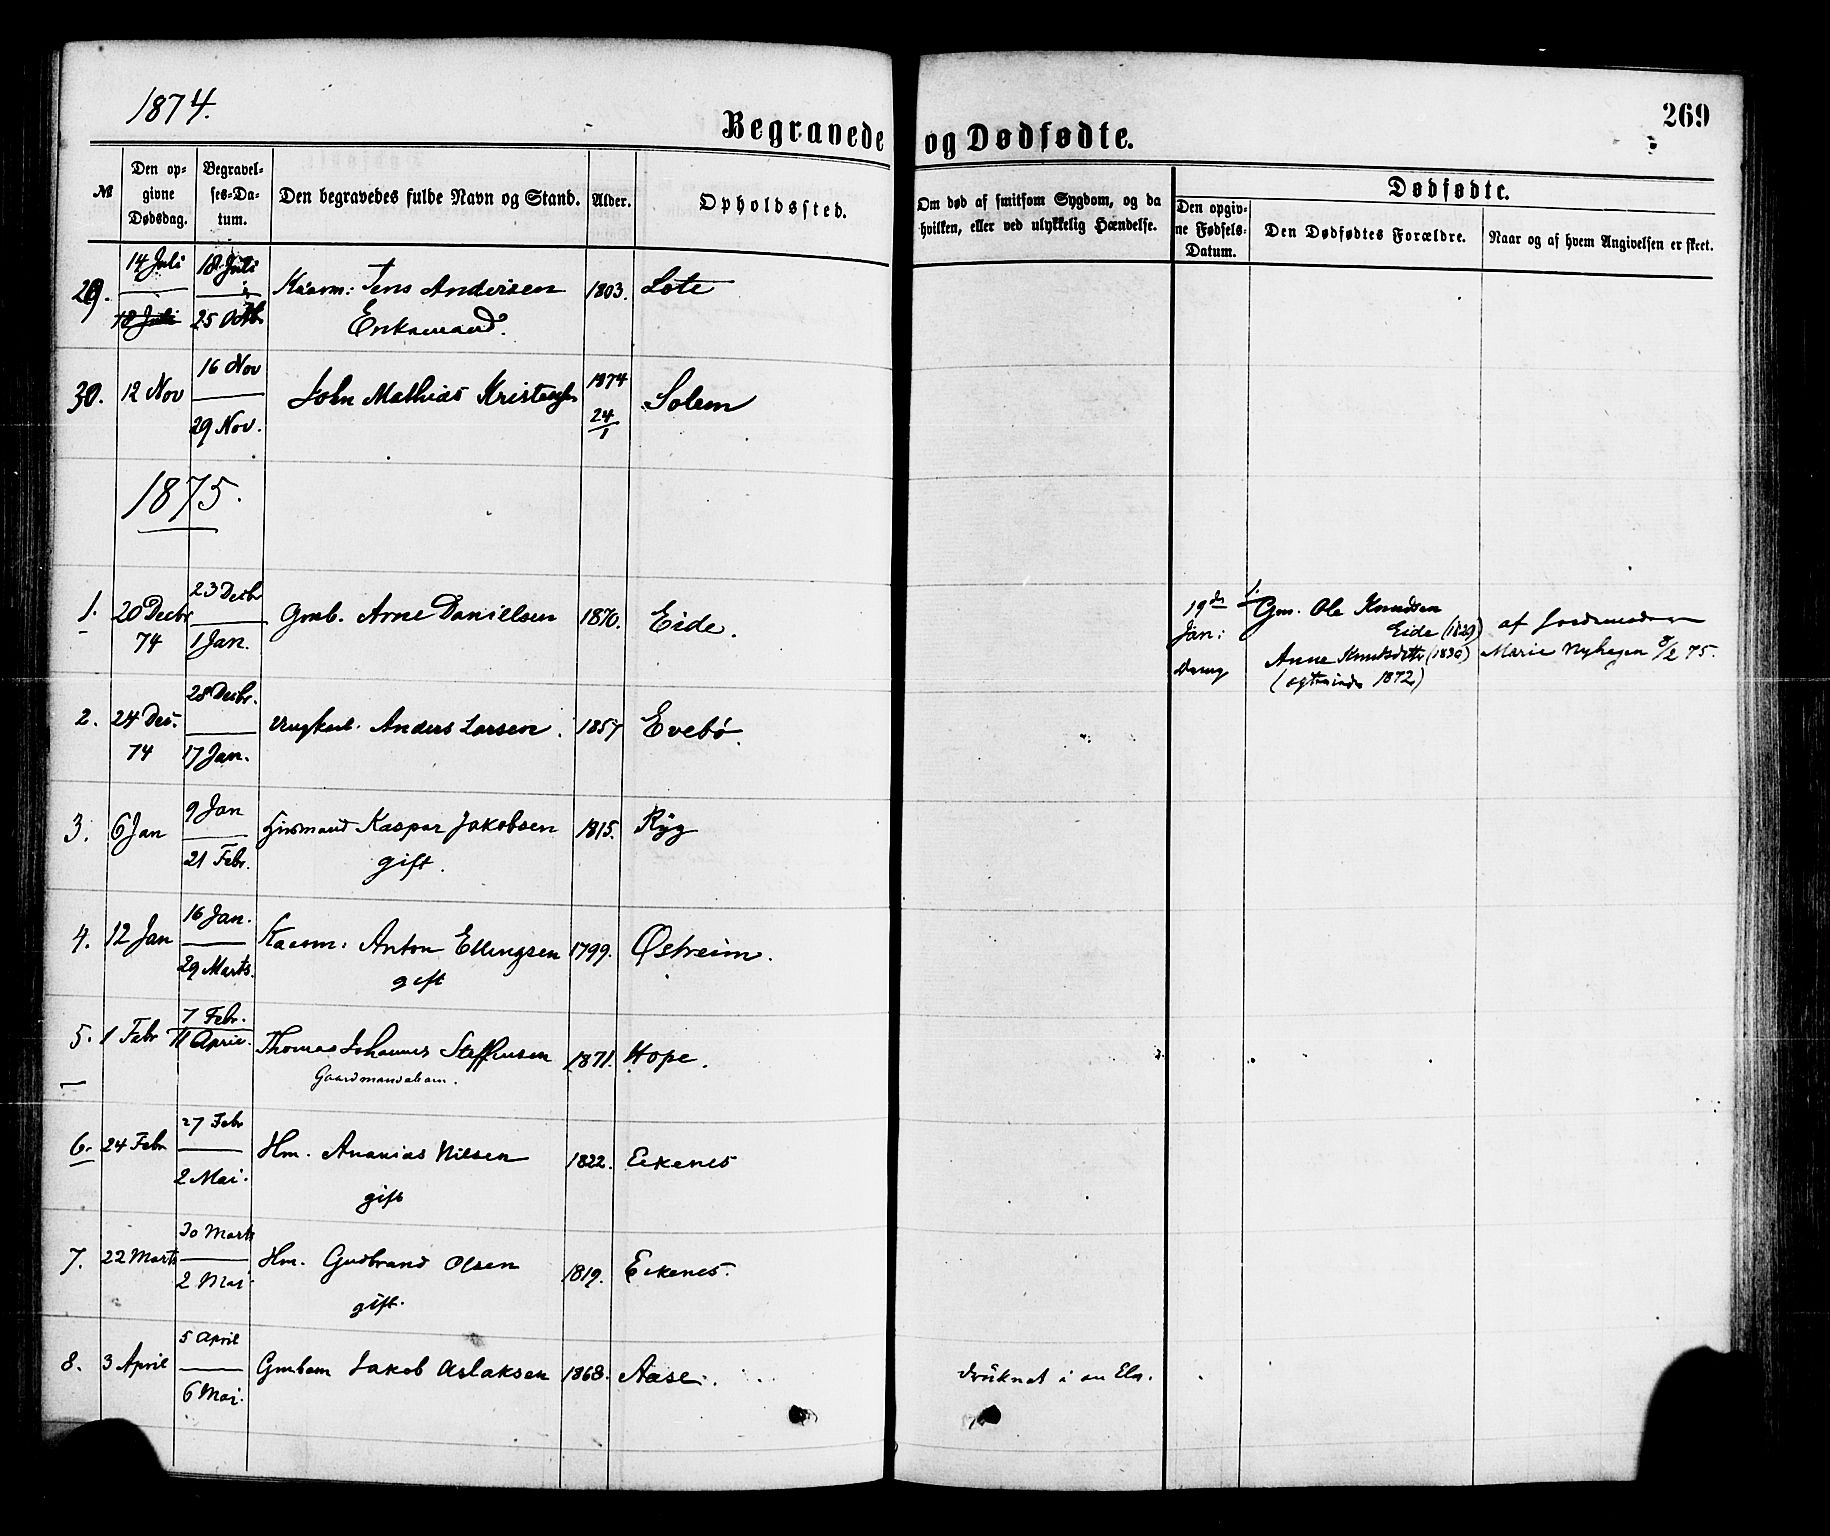 1874.
Begravede og Dødfødte.
269
№
Den opgivne Dødsdag.
Begravelses-Datum.
Den begravedes fulde Navn og Stand.
Alder.
Opholdssted.
Om død af smitsom Sygdom, og da hvilken, eller ved ulykkelig Hændelse.
Dødfødte.
Den opgivne Fødsels-Datum.
Den Dødfødtes Forældre.
Naar og af hvem Angivelsen er skeet.
29. 14 Juli 18 Juli Kaarm: Jens Andersen 1803. Lote
18 Juli 25 Octb Enkemand.
30. 12 Nov 16 Nov 29 Nov. John Mathias 1874 24/1 Solem
1875.
1. 20 Decbr 74 23 Decbr 1 Jan. Gmb. Arne Daniellsen 1870. Eide.
19de Jan: 1. Gm. Ole Knudsen
Eide (1829) af
Anne Knudsdtt (1830) Marie Nyhagen 8/2 75.
1872)
2. 24 Dec. 74 28 Decbr. 17 Jan. Ungkarl. Anders Larsen. 1857 Evebø.
3. 6 Jan 9 Jan 21 Febr. Huusmand Kaspar Jakobsen 1815. Ryg
gift.
4. 12 Jan 16 Jan. 29 Marts. Kaarm: Anton Ellingsen 1799. Østreim.
gift
5. 1 Febr 7 Febr. 11 April. Thomas Johannes Steffensen 1871. Hope.
Gaardmandsbarn.
6. 24 Febr 27 Febr 2 Mai. Hm. Ananias Nilsen 1822. Eikenes
gift
7. 22 Marts 30 Marts 2 Mai. Hm. Gudbrand Olsen 1819. Eikenes.
gift.
8. 3 April 5 April 6 Mai. Gmbarn Jakob Aslaksen 1868. Aase. druknet i en Elv.